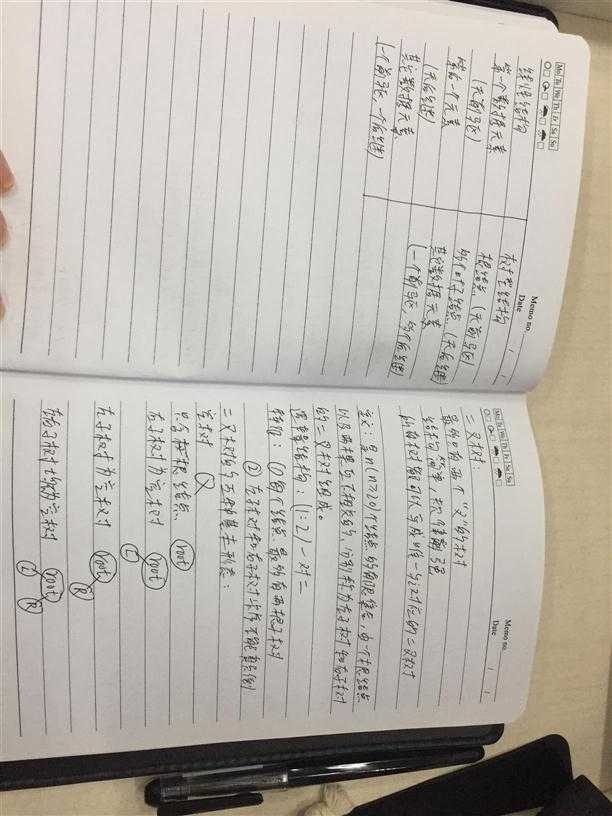 Memo no.
Date / /
Mo Tu We Th Fr Sa Su
线性结构
树型结构
第一个数据元素
根结点 (无前导)
(无前导)
多个叶子结点 (无后继)
最后一个元素
其它数据元素
(无后继)
(一个前导, 多个后继)
其它数据元素
(一个前导, 一个后继)
Memo no.
Date / /
Mo Tu We Th Fr Sa Su
二叉树
最多只有两个“叉”的树
结构简单, 规律性强
所有树都可以写成唯一与之对应的二叉树
定义: 是n(n≥0)个结点的有限集合, 由一个根结点
以及两棵互不相交的、分别称为左子树和右子树
的二叉树组成。
逻辑结构: (1:2) 一对二
特征: ① 每个结点最多有两棵子树
② 左子树和右子树次序不能颠倒
二叉树的五种基本形态:
空树
只有一根结点 root
右子树为空树 root
L
左子树为空树 root
R
左右子树均不为空树 root
L R